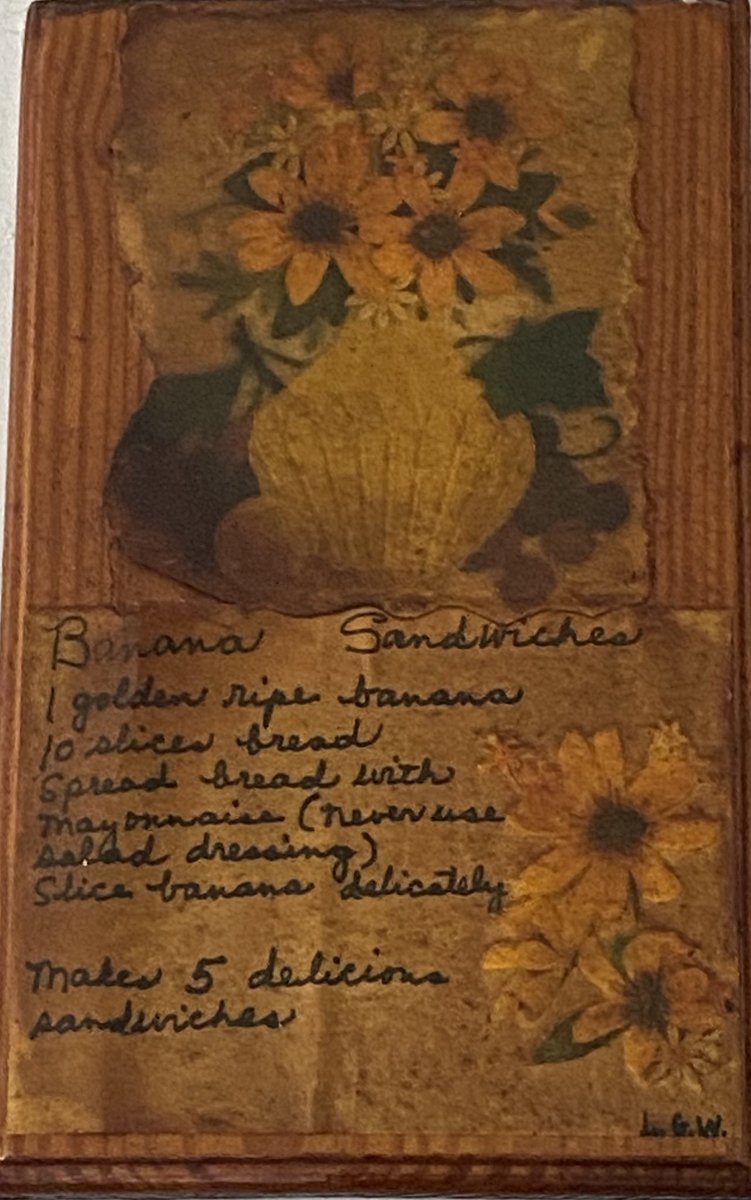 Banana Sandwiches
1 golden ripe banana
10 slices bread
Spread bread with
mayonnaise (never use
salad dressing)
Slice banana delicately
Makes 5 delicious
sandwiches
L. G. W.